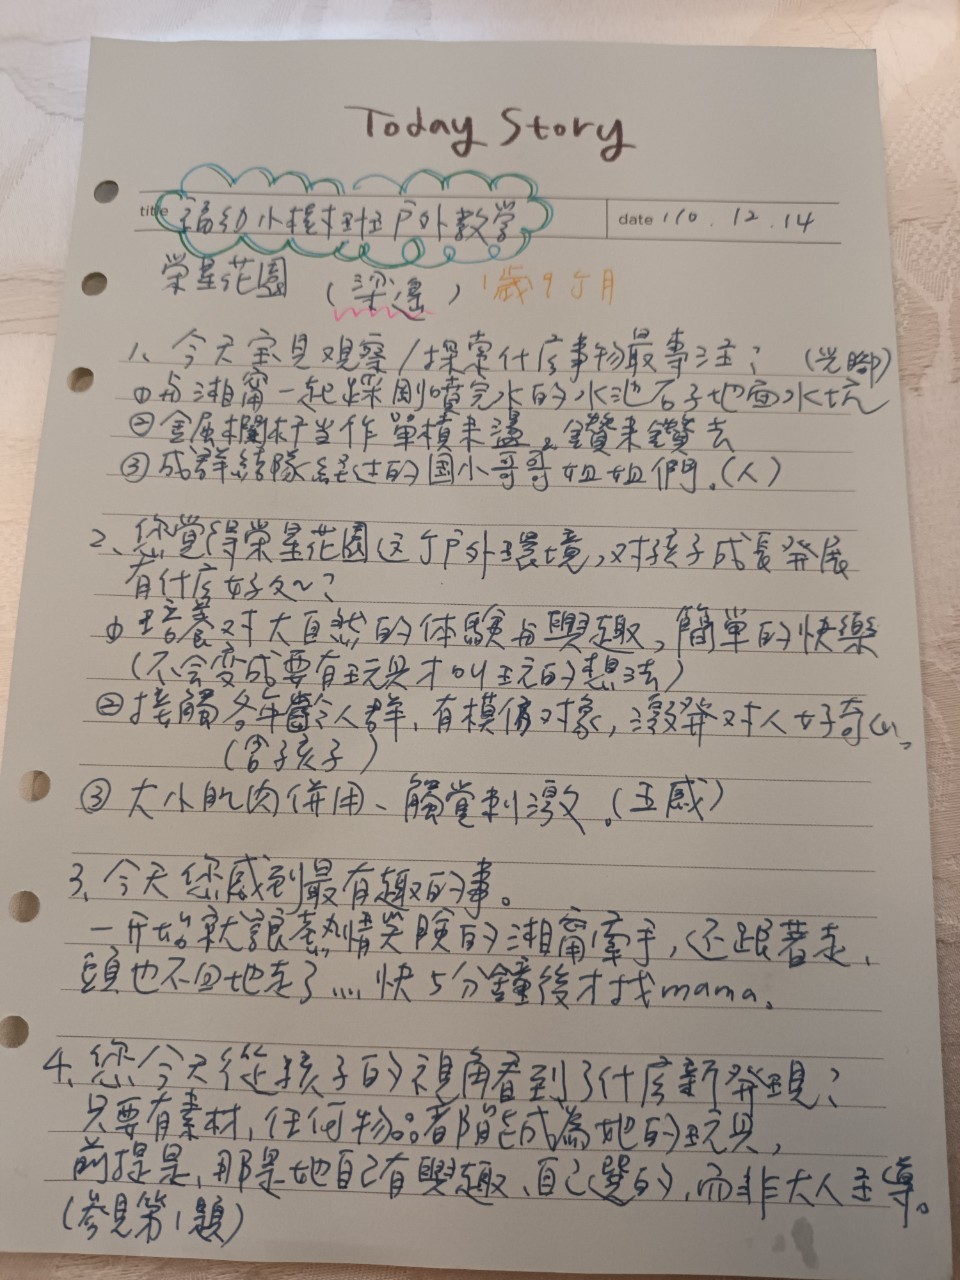 Today Story
title 福幼小樹班戶外教學
date 110.12.14
榮星花園 (梁遙) 1歲9个月
1、今天宝貝观察/探索什庅事物最專注? (光腳)
①与湘甯一起踩剛噴完水的水池石子地面水坑
②金属欄杆当作單槓來盪。鑽來鑽去
③成群結隊経过的国小哥哥姐姐們.(人)
2、您覺得榮星花園这个戶外環境,对孩子成長発展
有什庅好处~?
① 培養对大自然的体驗与興趣,簡單的快樂
(不会变成要有玩具才叫玩的想法)
②接觸各年齡人群,有模倣对象,激発对人好奇心。
(含孩子)
③ 大小肌肉併用、觸覚刺激。(五感)
3、今天您感到最有趣的事。
一开始就讓熱情笑臉的湘甯牽手,还跟著走,
頭也不回地走了.... 快5分鐘後才找mama。
4、您今天從孩子的視角看到了什庅新発現?
只要有素材,任何物品都能成為她的玩具,
前提是,那是她自己有興趣、自己選的,而非大人主導。
(参見第1題)